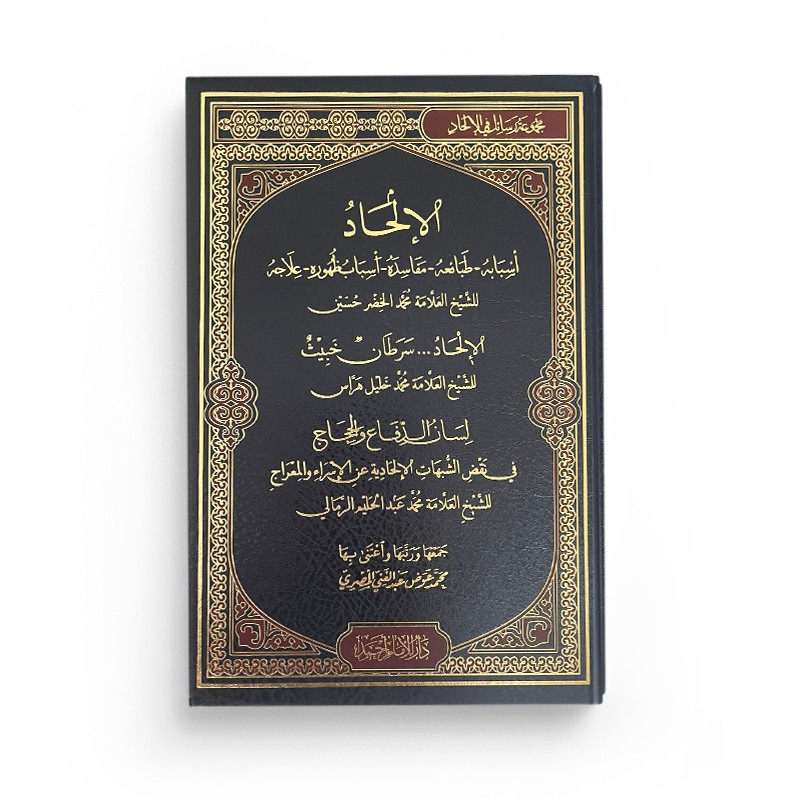 مجموعة رسائل في الإلحاد
الإلْحَادُ
أسْبَابُهُ - طَبَائعُهُ - مَفَاسِدُهُ - أسْبَابُ ظُهُورِهِ - عِلَاجُهُ
للشَّيْخ العَلَّامَة مُحَمَّد الخَضِر حُسَيْن
الإلْحَادُ ... سَرَطَانٌ خَبِيْثٌ
للشَّيْخ العَلَّامَة مُحَمَّد خَلِيْل هَرَّاس
لِسَانُ الدِّفَاعِ وَالحِجَاجِ
في نَقْضِ الشُّبهَاتِ الإلْحَادِيةِ عَنِ الإسْرَاءِ وَالمِعْرَاجِ
للشَّيْخِ العَلَّامَة مُحَمَّد عَبْد الحَلِيْم الرَّمَالي
جَمَعَهَا وَرَتَّبَهَا وَاعْتَنَى بِهَا
مُحَمَّد عَوَض عَبْد الغَنِي المِصْرِيّ
دَارُ الإِمَام أَحْمَد